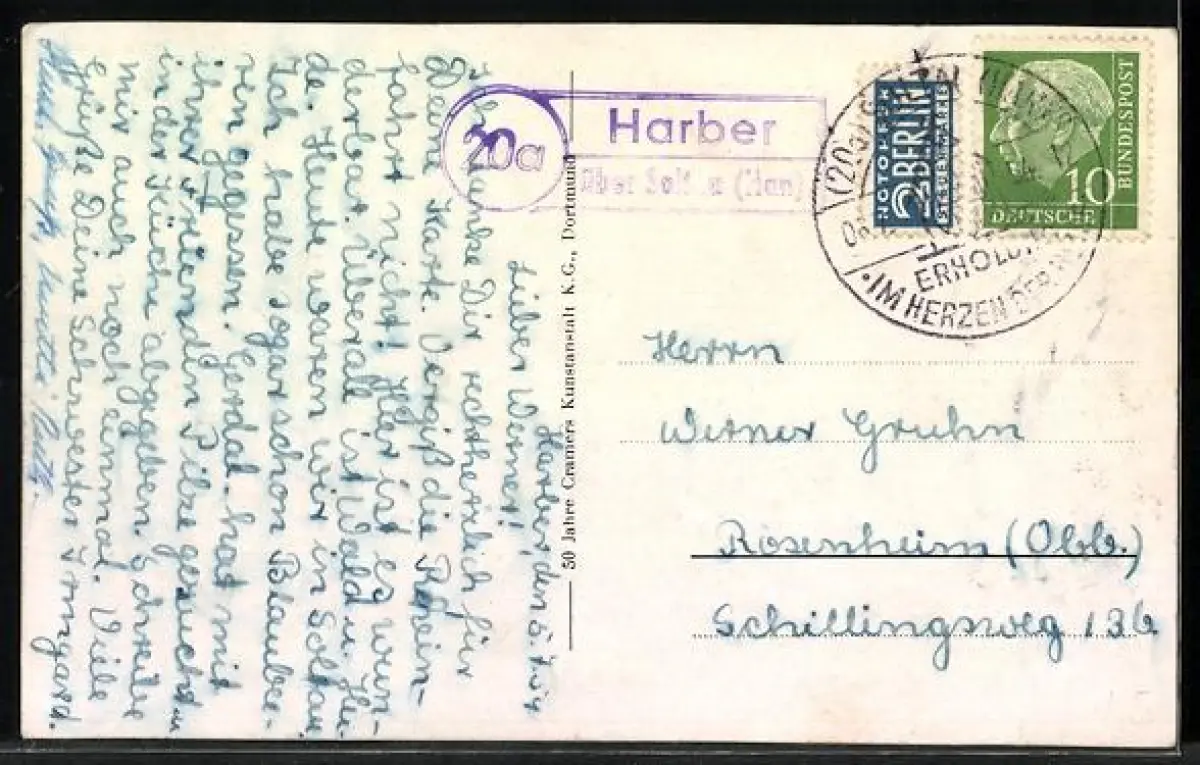 Harber, den 5.
Lieber Werner!
Ich danke Dir recht herzlich für
Deine Karte. Vergiß die Rhein-
fahrt nicht! Hier ist es wun-
derbar. Überall ist Wald u. Hei-
de. Heute waren wir in Soltau.
Ich habe sogar schon Blaubee-
ren gegessen. Gerda hat mit
ihrer Freundin Pilze gesucht u.
in der Küche abgegeben. Schreibe
mir auch noch einmal. Viele
Grüße Deine Schwester Irmgard.
50 Jahre Cramers Kunstanstalt K.G., Dortmund
20a
Harber
über Soltau (Han)
NOTOPFER
2 BERLIN
STEUERMARKE
10
DEUTSCHE
BUNDESPOST
(20a)
IM HERZEN DER
Herrn
Werner Gruhn
Rosenheim (Obb.)
Schillingsweg 13b